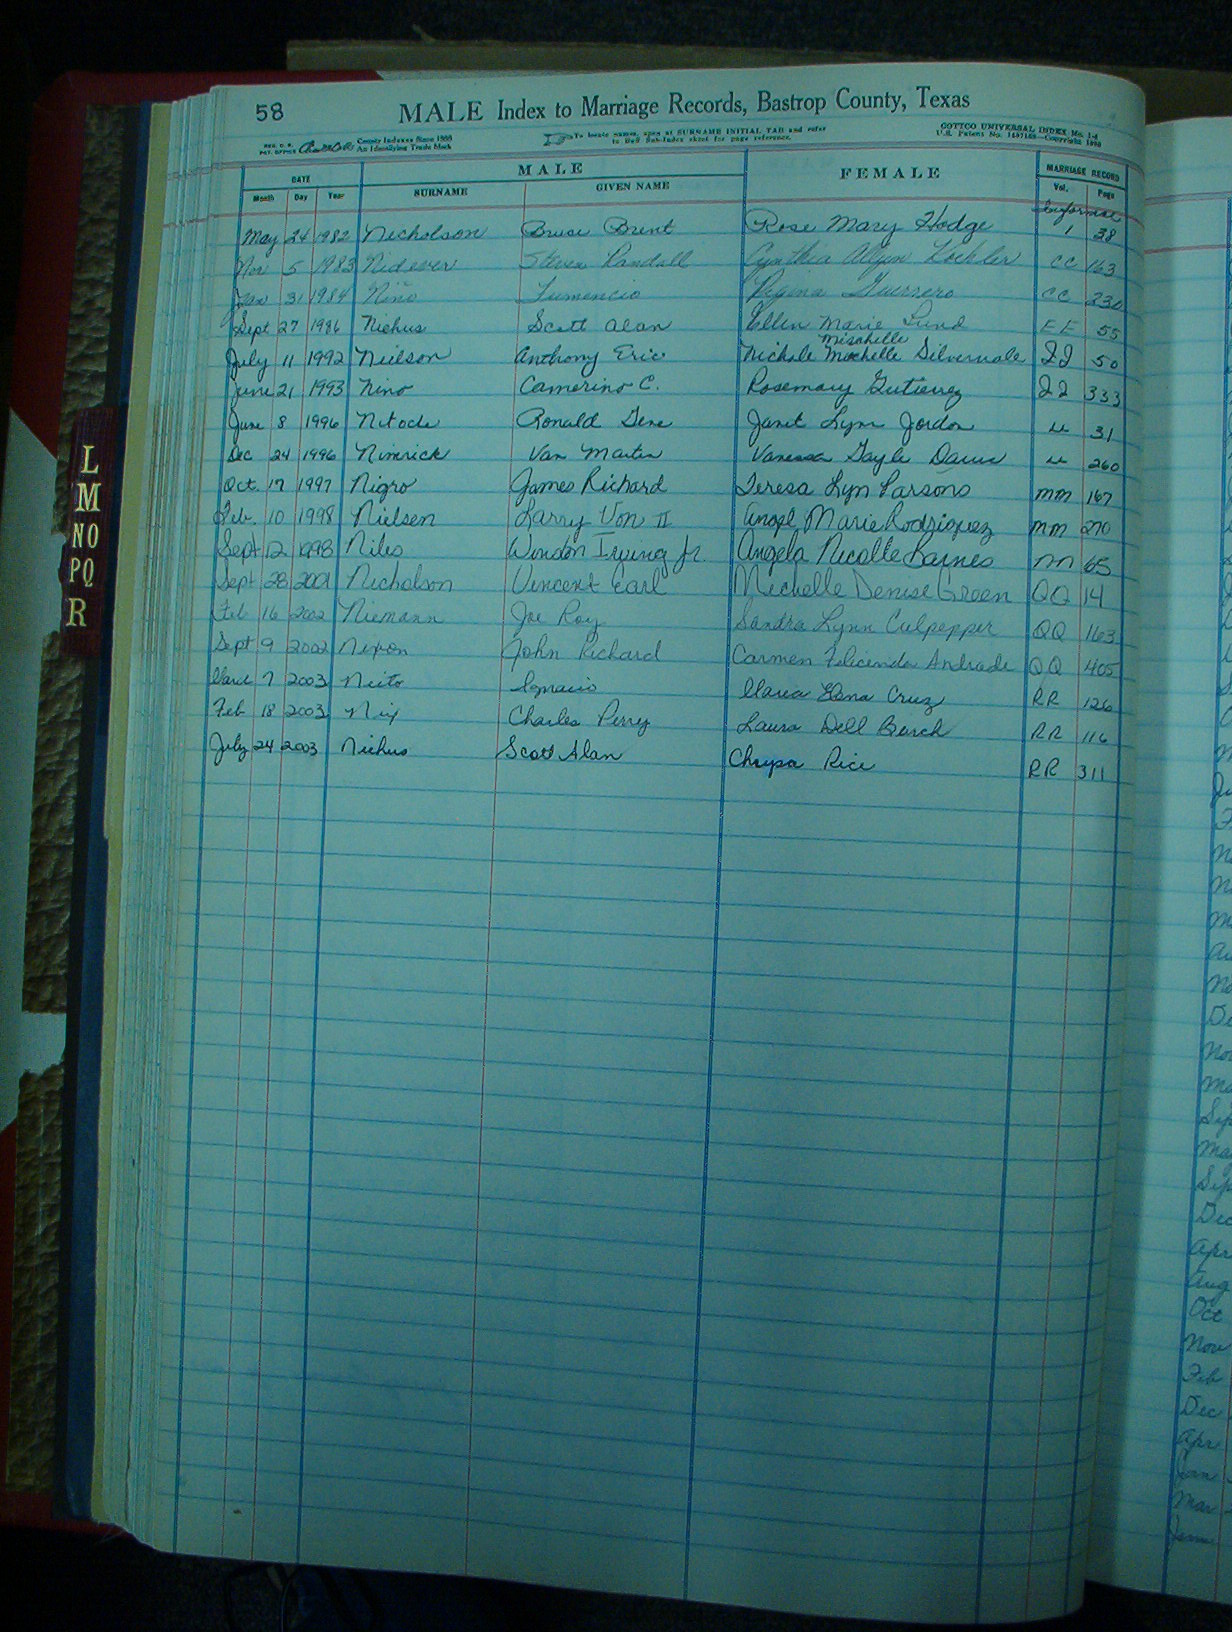 58 MALE Index to Marriage Records, Bastrop County, Texas
REG. U.S. PAT. OFFICE County Indexes Since 1888 An Identifying Trade Mark
To locate names, open at SURNAME INITIAL TAB and refer to Buff Sub-Index sheet for page reference.
COTTCO UNIVERSAL INDEX No. 1-4
DATE MALE FEMALE MARRIAGE RECORD
Month Day Year SURNAME GIVEN NAME Vol. Page
Informal
May 24 1982 Nicholson Bruce Brent Rose Mary Hodge 1 38
Nov 5 1983 Nidever Steven Randall Cynthia Alyn Kochler CC 163
Jan 31 1984 Niño Fumencio Regina Guerrero CC 230
Sept 27 1986 Niehus Scott Alan Ellen Marie Lund EE 55
Mischelle
July 11 1992 Neilson Anthony Eric Nichole Silvernale JJ 50
June 21 1993 Nino Camerino C. Rosemary Gutierrez JJ 333
June 8 1996 Ronald Gene Janet Lynn Jordon LL 31
Dec 24 1996 Nimrick Van Martin Vanessa Gayle Davis LL 260
Oct. 17 1997 Nigro James Richard Teresa Lyn Parsons MM 167
Feb. 10 1998 Nielsen Larry Von II Angel Marie Rodriguez MM 270
Sept 12 1998 Niles Windon Irving Jr. Angela Nicolle Raines NN 65
Sept 28 2001 Nicholson Vincent Earl Michelle Denise Green QQ 14
Feb 16 2002 Niemann Joe Roy Sandra Lynn Culpepper QQ 163
Sept 9 2002 Nixon John Richard Carmen Andrade QQ 405
March 7 2003 Neito Ignacio Maria Elena Cruz RR 126
Feb 18 2003 Nix Charles Perry Laura Dell Burch RR 116
July 24 2003 Niehus Scott Alan Chrysa Rice RR 311
L
M
NO
PQ
R
Dec
Nov
Ma
Dec
Apr
Aug
Oct
Nov
Feb
Dec
Apr
Jan
Mar